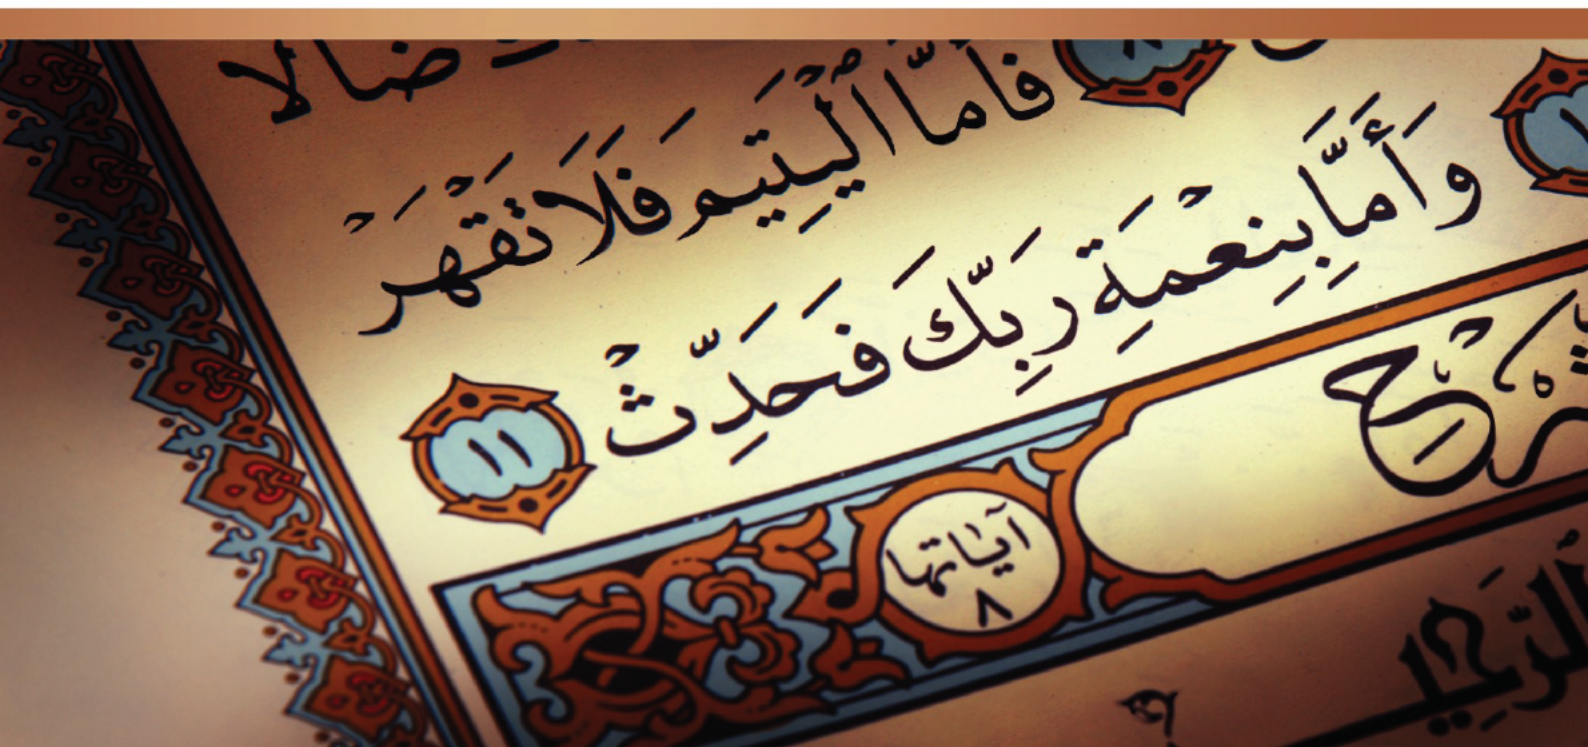 ضَالًّا
٨ فَأَمَّا ٱلْيَتِيمَ فَلَا تَقْهَرْ
وَأَمَّا بِنِعْمَةِ رَبِّكَ فَحَدِّثْ ١١
آيَاتُهَا
٨